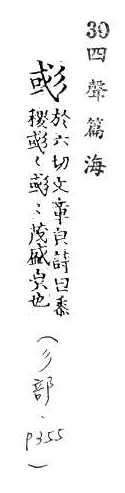 39 四聲篇海
彧 於六切文章皃詩曰黍
稷彧〻彧〻茂盛皃也
(彡部.P355)